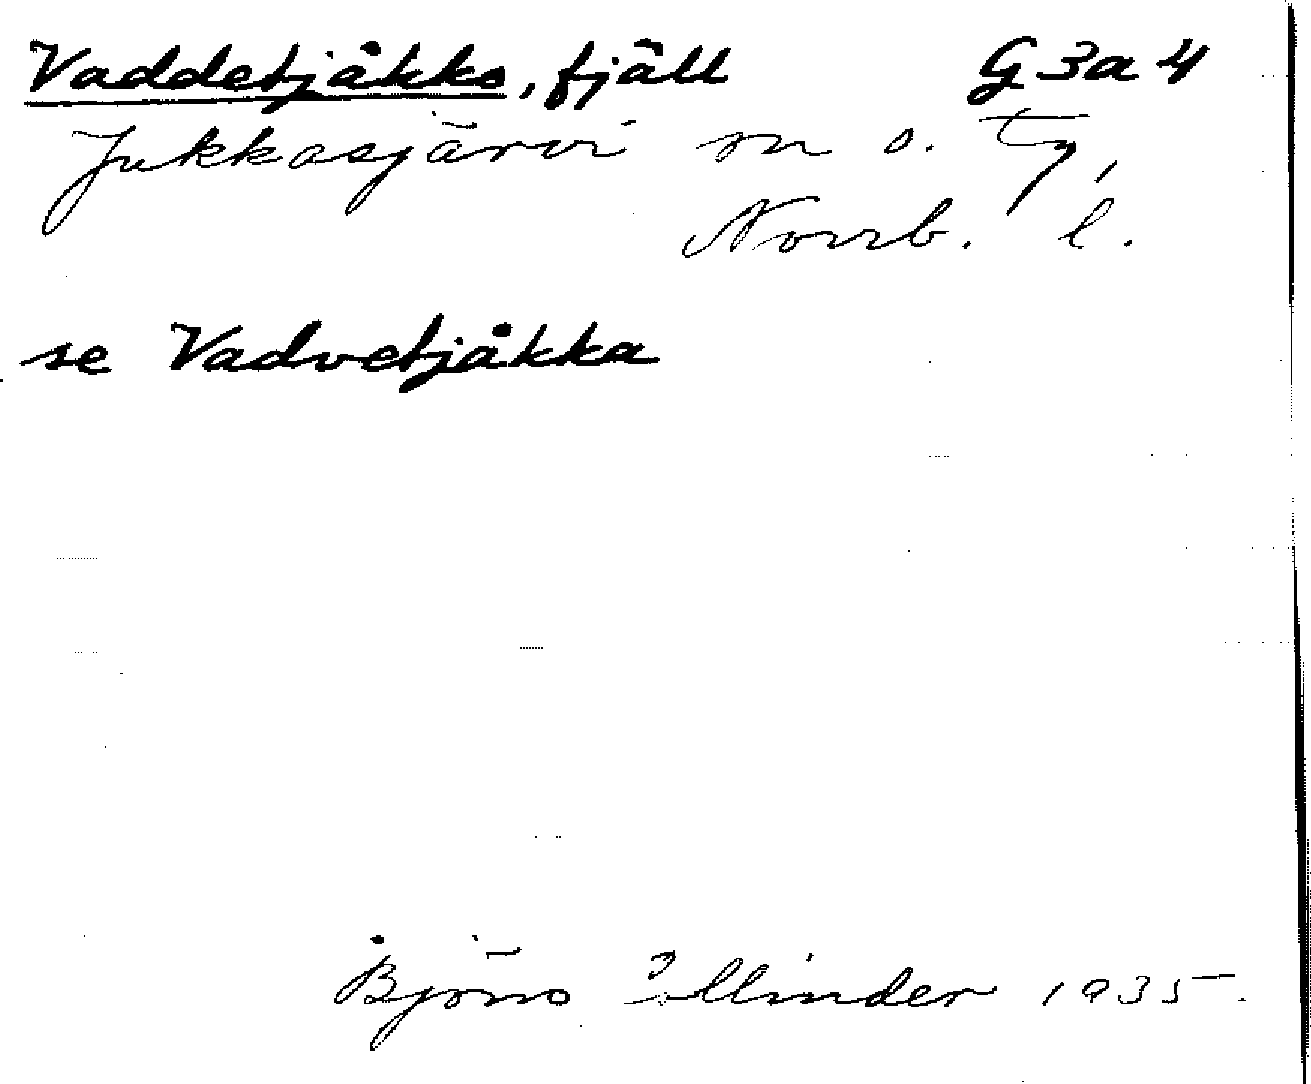 Vaddetjåkko, fjäll G 3 a 4
Jukkasjärvi sn o. tg,
Norrb. l.
se Vadvetjåkka
Björn Collinder 1935.